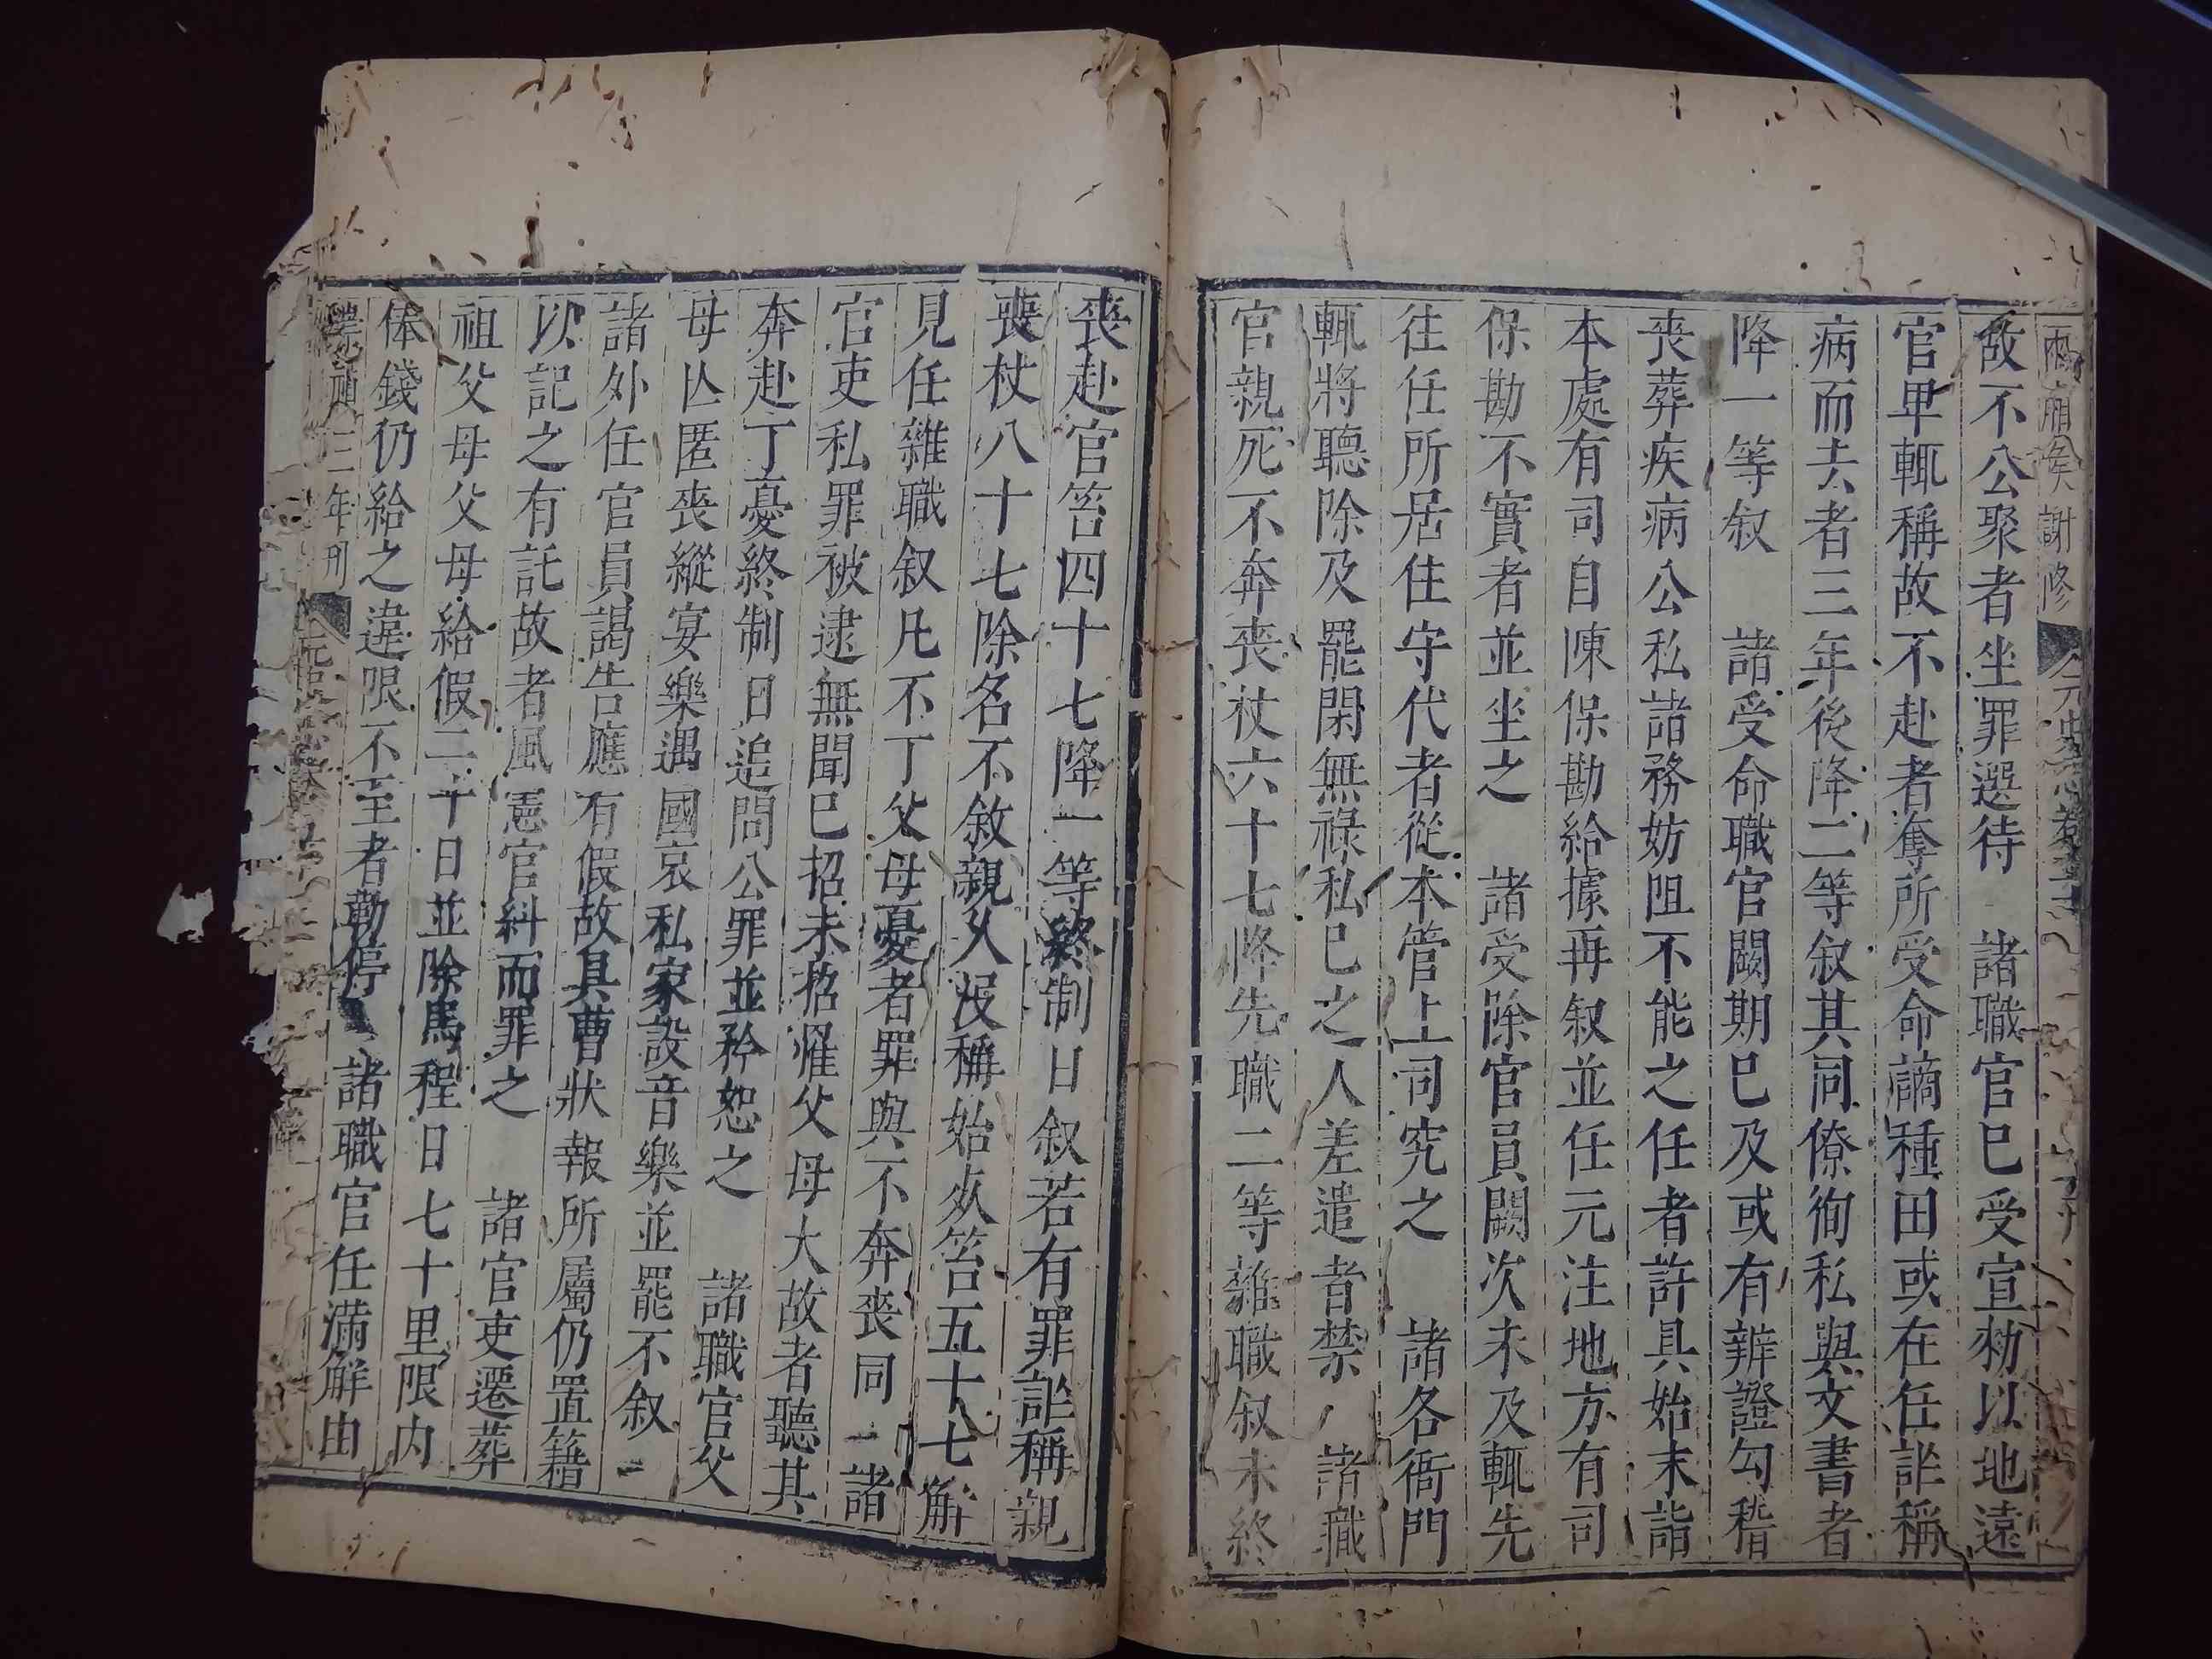 故不公聚者坐罪選待　諸職官已受宣勑以地遠
官卑輒稱故不赴者奪所受命謫種田或在任詐稱
病而去者三年後降二等叙其同僚徇私與文書者
降一等叙　諸受命職官闕期已及或有辨證勾稽
喪葬疾病公私諸務妨阻不能之任者許具始末詣
本處有司自陳保勘給據再叙並任元注地方有司
保勘不實者並坐之　諸受除官員闕次未及輒先
往任所居住守代者從本管上司究之　諸各衙門
輒將聽除及罷閑無祿私已之人差遣者禁　諸職
官親死不奔喪杖六十七降先職二等雜職叙未終
喪赴官笞四十七降一等終制日叙若有罪詐稱親
喪杖八十七除名不敘親久沒稱始死笞五十七解
見任雜職叙凡不丁父母憂者罪與不奔喪同　諸
官吏私罪被逮無聞已招未招罹父母大故者聽其
奔赴丁憂終制日追問公罪並矜恕之　諸職官父
母亾匿喪縱宴樂遇國哀私家設音樂並罷不叙
諸外任官員謁告應有假故具曹狀報所屬仍置籍
以記之有託故者風憲官糾而罪之　諸官吏遷葬
祖父母父母給假二十日並除馬程日七十里限内
俸錢仍給之違限不至者勒停　諸職官任滿解由
三年刊